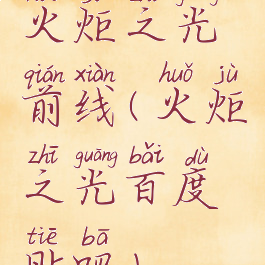 huǒ jù zhī guāng
火炬之光
qián xiàn huǒ jù
前线(火炬
zhī guāng bǎi dù
之光百度
tiē bā
贴吧)